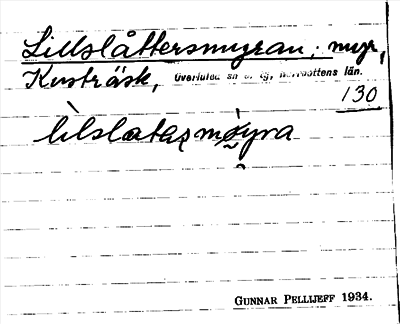 Lillslåttersmyran; myr,
Kusträsk, Överluleå sn o. tg, Norrbottens län.
130
lilslatasmyra
GUNNAR PELLIJEFF 1934.